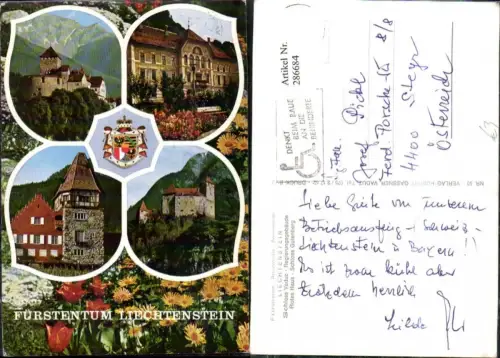 FÜRSTENTUM LIECHTENSTEIN
Artikel Nr.
286684
DENKT
BEIM BAUE
AN DIE
BEHINDERTE
Josef
Ferd. Porsche Str. 8/8
4400 Steyr
Österreich
63
LIECHTENSTEIN
Liebe Grüße von unserem
Betriebsausflug - Schweiz -
Liechtenstein u Bayern!!
Es ist zwar kühl aber
trotzdem herrlich
Hilde